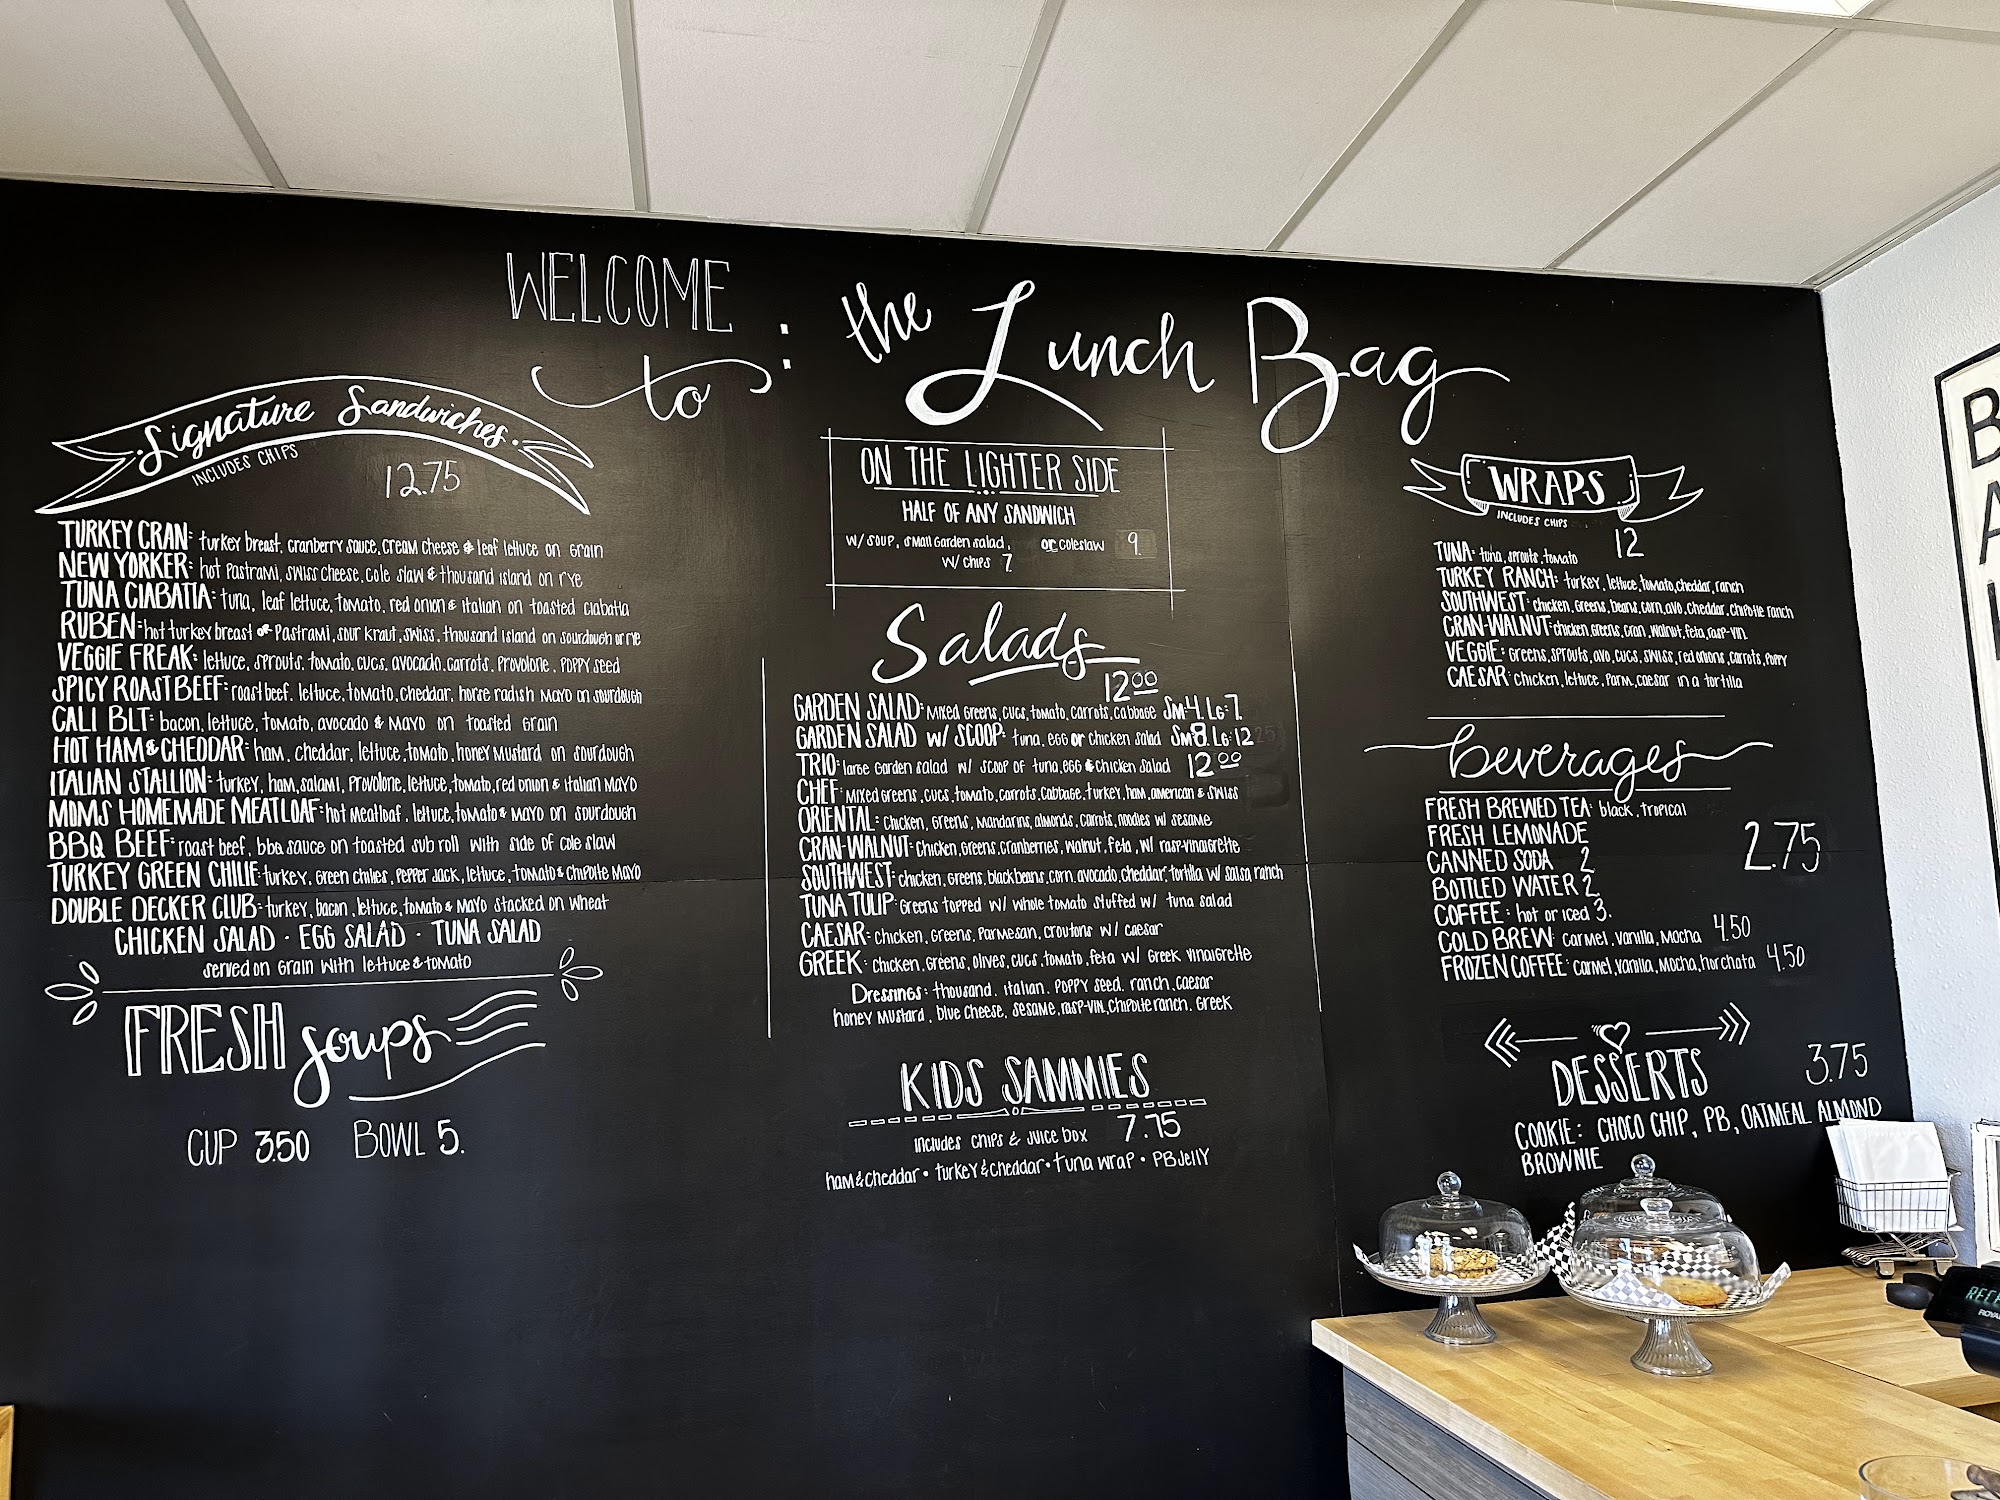 WELCOME
to :
the Lunch Bag
Signature Sandwiches
INCLUDES CHIPS
12.75
TURKEY CRAN: turkey breast, cranberry sauce, cream cheese & leaf lettuce on grain
NEW YORKER: hot pastrami, swiss cheese, cole slaw & thousand island on rye
TUNA CIABATIA: tuna, leaf lettuce, tomato, red onion & italian on toasted ciabatta
RUBEN: hot turkey breast or pastrami, sour kraut, swiss, thousand island on sourdough or rye
VEGGIE FREAK: lettuce, sprouts, tomato, cucs, avocado, carrots, provolone, poppy seed
SPICY ROAST BEEF: roast beef, lettuce, tomato, cheddar, horse radish mayo on sourdough
CALI BLT: bacon, lettuce, tomato, avocado & mayo on toasted grain
HOT HAM & CHEDDAR: ham, cheddar, lettuce, tomato, honey mustard on sourdough
ITALIAN STALLION: turkey, ham, salami, provolone, lettuce, tomato, red onion & italian mayo
MOMS HOMEMADE MEATLOAF: hot meatloaf, lettuce, tomato & mayo on sourdough
BBQ BEEF: roast beef, bbq sauce on toasted sub roll with side of cole slaw
TURKEY GREEN CHILIE: turkey, green chilies, pepper jack, lettuce, tomato & chipolte mayo
DOUBLE DECKER CLUB: turkey, bacon, lettuce, tomato & mayo stacked on wheat
CHICKEN SALAD · EGG SALAD · TUNA SALAD
served on grain with lettuce & tomato
FRESH soups
CUP 3.50 BOWL 5.
ON THE LIGHTER SIDE
HALF OF ANY SANDWICH
w/ soup, small garden salad, or coleslaw 9.
w/ chips 7
Salads
12.00
GARDEN SALAD: mixed greens, cucs, tomato, carrots, cabbage Sm: 4. Lg: 7.
GARDEN SALAD w/ SCOOP: tuna, egg or chicken salad Sm 8. Lg: 12
TRIO: large garden salad w/ scoop of tuna, egg & chicken salad 12.00
CHEF: mixed greens, cucs, tomato, carrots, cabbage, turkey, ham, american & swiss
ORIENTAL: chicken, greens, mandarins, almonds, carrots, noodles w/ sesame
CRAN-WALNUT: chicken, greens, cranberries, walnut, feta, w/ rasp-vinaigrette
SOUTHWEST: chicken, greens, blackbeans, corn, avocado, cheddar, tortilla w/ salsa, ranch
TUNA TULIP: greens topped w/ whole tomato stuffed w/ tuna salad
CAESAR: chicken, greens, parmesan, croutons w/ caesar
GREEK: chicken, greens, olives, cucs, tomato, feta w/ greek vinaigrette
Dressings: thousand, italian, poppy seed, ranch, caesar
honey mustard, blue cheese, sesame, rasp-vin, chipolte ranch, greek
KIDS SAMMIES
includes chips & juice box 7.75
ham & cheddar • turkey & cheddar • tuna wrap • PB Jelly
WRAPS
INCLUDES CHIPS
12
TUNA: tuna, sprouts, tomato
TURKEY RANCH: turkey, lettuce, tomato, cheddar, ranch
SOUTHWEST: chicken, greens, beans, corn, avo, cheddar, chipolte ranch
CRAN-WALNUT: chicken, greens, cran, walnut, feta, rasp-vin
VEGGIE: greens, sprouts, avo, cucs, swiss, red onions, carrots, poppy
CAESAR: chicken, lettuce, parm, caesar in a tortilla
beverages
FRESH BREWED TEA: black, tropical
FRESH LEMONADE
2.75
CANNED SODA 2
BOTTLED WATER 2.
COFFEE: hot or iced 3.
COLD BREW: carmel, vanilla, mocha 4.50
FROZEN COFFEE: carmel, vanilla, mocha, horchata 4.50
DESSERTS
3.75
COOKIE: CHOCO CHIP, PB, OATMEAL ALMOND
BROWNIE